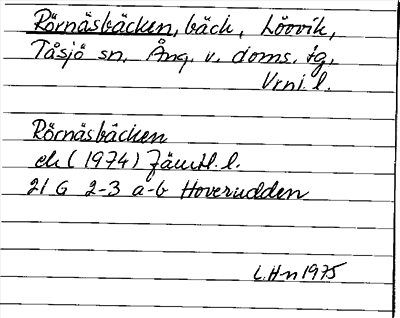 Rörnäsbäcken, bäck, Lövvik,
Tåsjö sn, Ång. v. doms. tg,
Vrnl. l.
Rörnäsbäcken
ek (1974) Jämtl. l.
21 G 2-3 a-b Hoverudden
L. H-n 1975